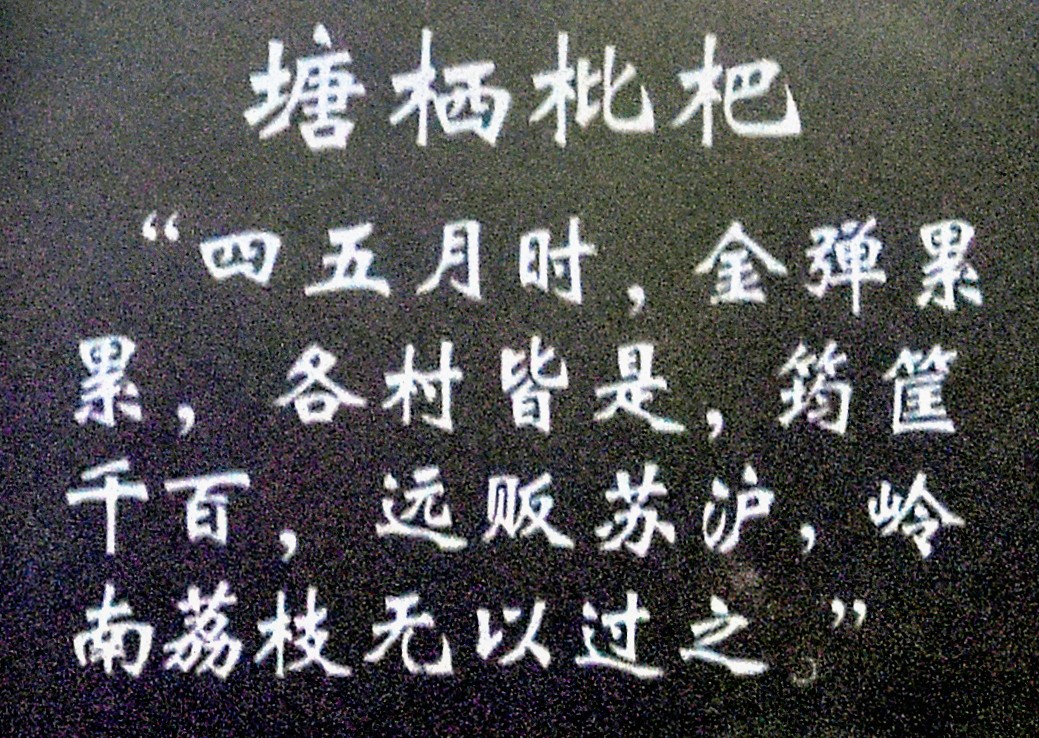 塘栖枇杷
“四五月时，金弹累
累，各村皆是，筠筐
千百，远贩苏沪，岭
南荔枝无以过之。”